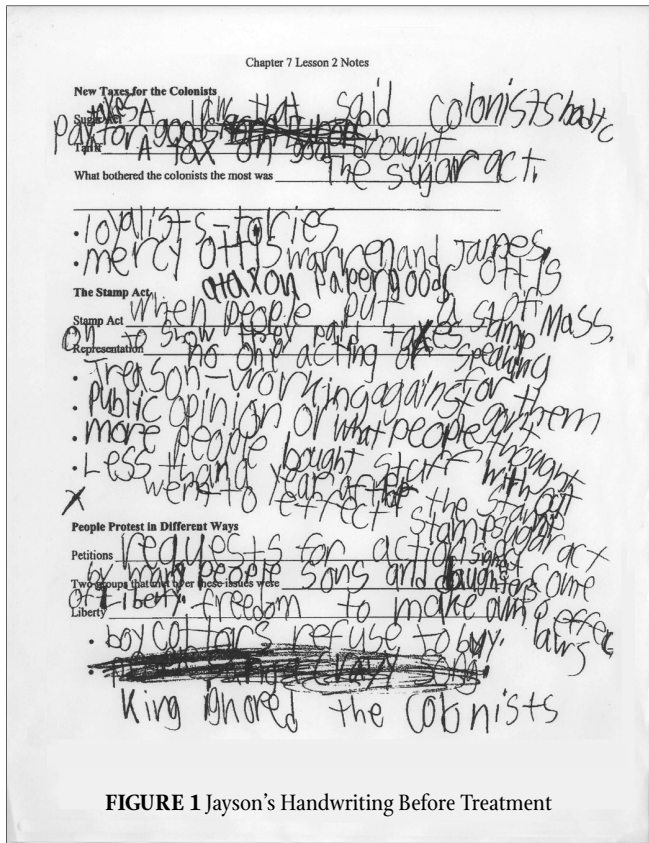 Chapter 7 Lesson 2 Notes
New Taxes for the Colonists
Sugar Act A law that said colonists had to
pay for goods brought
Tariff A tax on good
What bothered the colonists the most was The sugar act.
• loyalists - tories
• mercy ottis warren and James ottis
a tax on paper goods
The Stamp Act
Stamp Act When people put a stamp
on to show they paid taxes
Mass.
Representation no one acting or speaking for them
• Treason - working against
• Public opinion or what people thought
• more people bought stuff without the stamps
• Less than a year after the sugar act
went to effect
X
People Protest in Different Ways
Petitions requests for action signed
by many people
Two groups that met over these issues were Sons and daughters
of Liberty
Liberty freedom to make own laws
• boycotts refuse to buy.
King ignored the colonists
FIGURE 1 Jayson's Handwriting Before Treatment